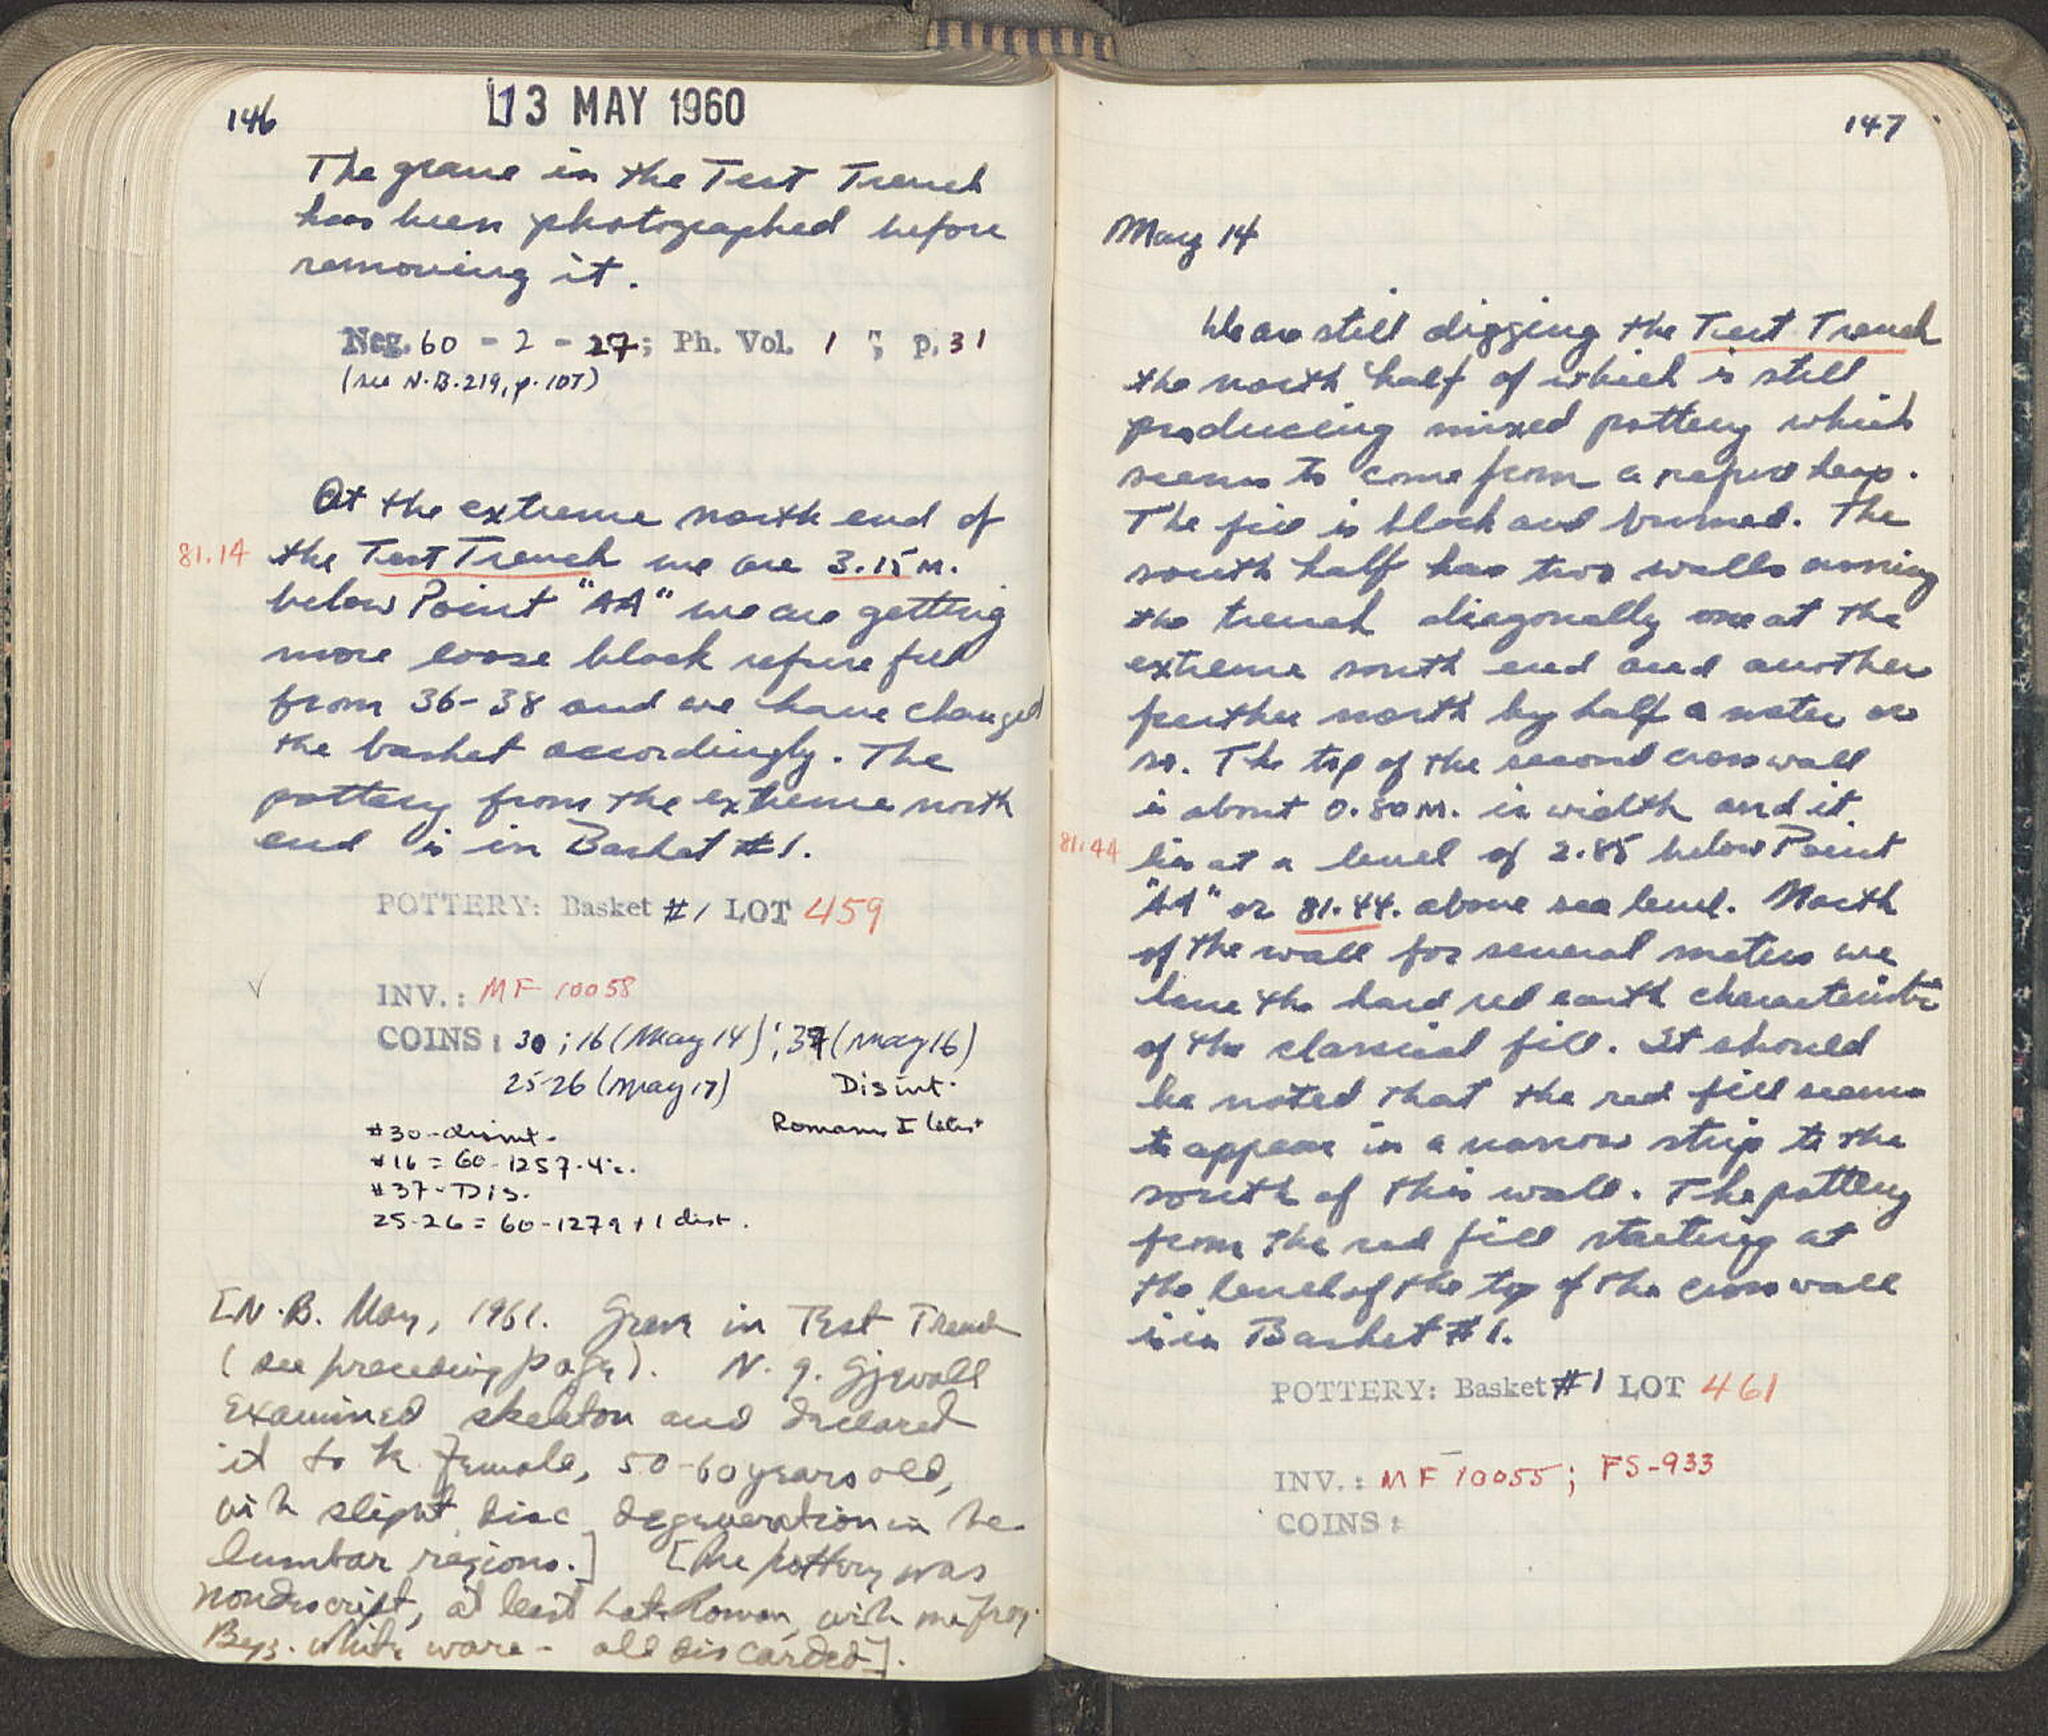 146
13 MAY 1960
The grave in the Test Trench
has been photographed before
removing it.
Neg. 60 - 2 - 27; Ph. Vol. 1 ; p. 31
(see N.B. 219, p. 107)
At the extreme north end of
81.14 the Test Trench we are 3.15 M.
below Point "AA" we are getting
more loose black refuse fill
from 36-38 and we have changed
the basket accordingly. The
pottery from the extreme north
end is in Basket #1.
POTTERY: Basket #1 LOT 459
INV.: MF 10058
COINS: 30; 16 (May 14); 37 (May 16)
25-26 (May 17) Disint.
Roman I latest
#30-disint.
#16 = 60-1257-4'c.
#37-Dis.
25-26 = 60-1279 + 1 dist.
[N.B. May, 1961. Grave in Test Trench
(see preceding page). N. g. Gjevall
examined skeleton and declared
it to be female, 50-60 years old,
with slight disc degeneration in the
lumbar regions.] [The pottery was
nondescript, at least Late Roman, with one frag.
Byz. white ware - all discarded].
147
May 14
We are still digging the Test Trench
the north half of which is still
producing mixed pottery which
seems to come from a refuse heap.
The fill is black and burned. The
south half has two walls crossing
the trench diagonally one at the
extreme south end and another
further north by half a meter or
so. The top of the second cross wall
is about 0.80 M. in width and it
81.44 lies at a level of 2.85 below Point
"AA" or 81.44. above sea level. North
of the wall for several meters we
have the hard red earth characteristic
of the classical fill. It should
be noted that the red fill seems
to appear in a narrow strip to the
south of this wall. The pottery
from the red fill starting at
the level of the top of the cross wall
is in Basket #1.
POTTERY: Basket #1 LOT 461
INV.: MF 10055; FS-933
COINS: